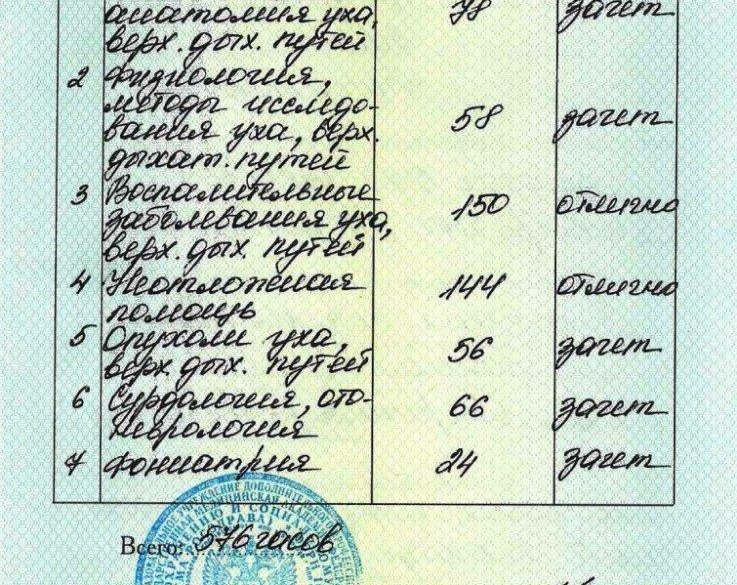 анатомия уха, 78 зачет
верх. дых. путей
2 Физиология,
методы исследо-
вания уха, верх. 58 зачет
дыхат. путей
3 Воспалительные
заболевания уха, 150 отлично
верх. дых. путей
4 Неотложная 144 отлично
помощь
5 Опухоли уха, 56 зачет
верх. дых. путей
6 Сурдология, ото- 66 зачет
неврология
7 Фониатрия 24 зачет
УЧРЕЖДЕНИЕ ДОПОЛНИТЕЛЬНО
МЕДИЦИНСКАЯ
Всего: 576 часов